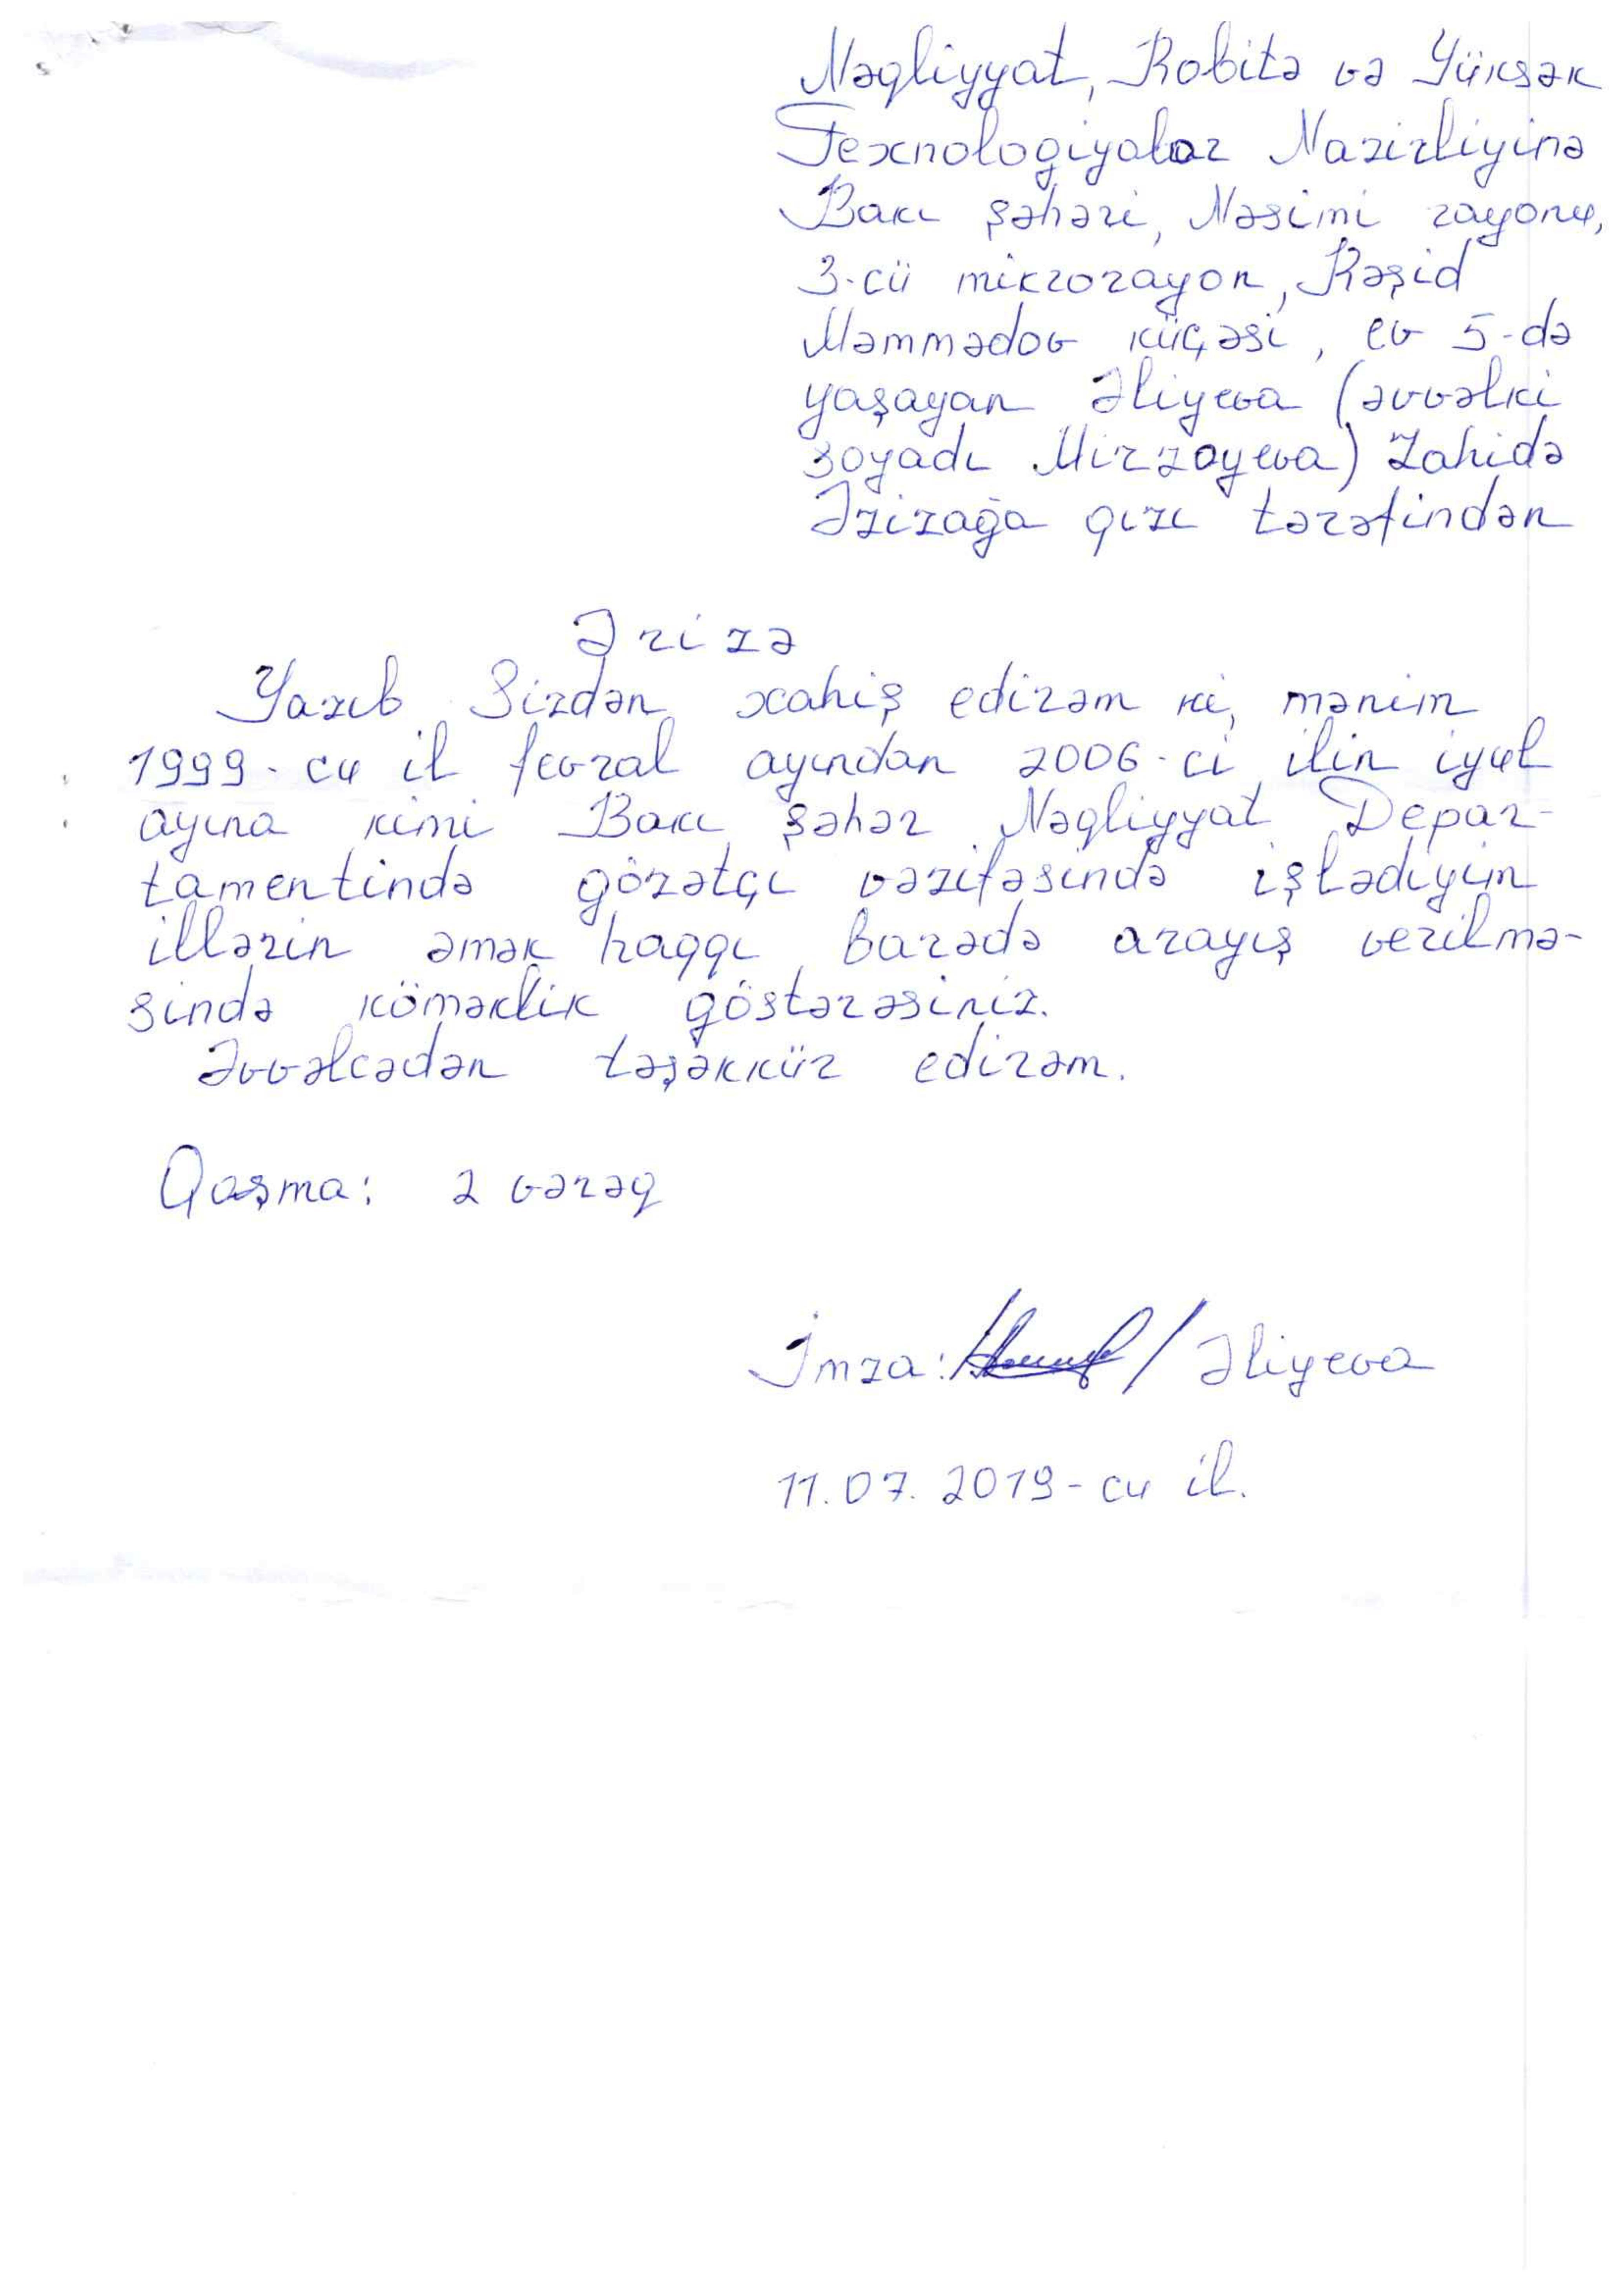 Nəqliyyat, Rabitə və Yüksək
Texnologiyalar Nazirliyinə
Bakı şəhəri, Nəsimi rayonu,
3-cü mikrorayon, Rəşid
Məmmədov küçəsi, ev 5-də
yaşayan Əliyeva (əvvəlki
soyadı Mirzəyeva) Zahidə
Əzizağa qızı tərəfindən
Ərizə
Yazıb Sizdən xahiş edirəm ki, mənim
1999-cu il fevral ayından 2006-ci ilin iyul
ayına kimi Bakı şəhər Nəqliyyat Depar-
tamentində gözətçi vəzifəsində işlədiyim
illərin əmək haqqı barədə arayış verilmə-
sində köməklik göstərəsiniz.
Əvvəlcədən təşəkkür edirəm.
Qoşma: 2 vərəq
İmza: / Əliyeva
11.07.2019-cu il.